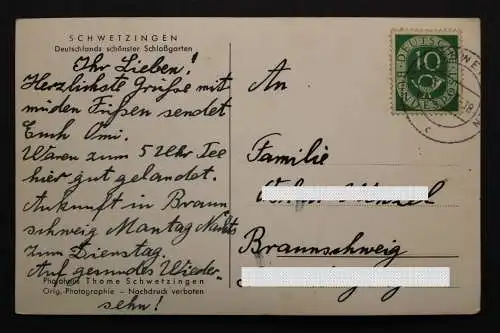 SCHWETZINGEN
Deutschlands schönster Schloßgarten
Ihr Lieben!
Herzlichste Grüße mit
müden Füßen sendet
Euch Omi.
Waren zum 5 Uhr Tee
hier gut gelandet.
Ankunft in Braun
schweig Montag Nachts
zum Dienstag.
Auf gesundes Wieder-
sehn!
Photohaus Thome Schwetzingen
Orig.-Photographie – Nachdruck verboten
An
Familie
Braunschweig
DEUTSCHE BUNDESPOST
10